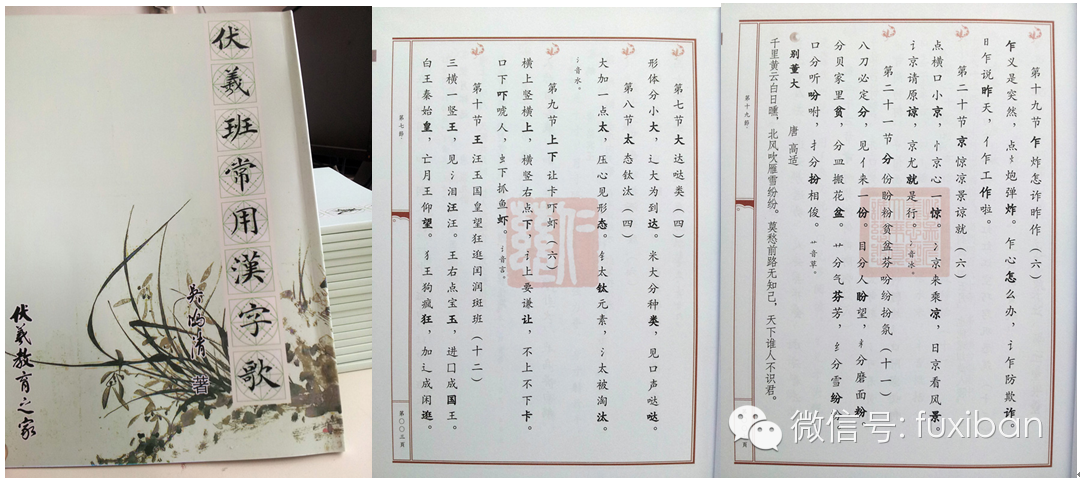 伏羲班常用漢字歌
吴鸿清 著
伏羲教育之家
第七节 大 达哒类(四)
形体分小大,辶大为到达。米大分种类,见口声哒哒。
第八节 太 态钛汰(四)
大加一点太,压心见形态。钅太钛元素,氵太被淘汰。
氵音水。
第九节 上下 让卡吓虾(六)
横上竖横上,横竖右点下,讠上要谦让,不上不下卡。
口下吓唬人,虫下抓鱼虾。 讠音言。
第十节 王 汪玉国皇望狂逛闰润班斑(十二)
三横一竖王,见氵泪汪汪。王右点宝玉,进囗成国王。
白王秦始皇,亡月王仰望。犭王狗疯狂,加辶成闲逛。
第七節
第〇〇三頁
第十九节 乍 炸怎诈昨作(六)
乍义是突然,点火炮弹炸。乍心怎么办,讠乍防欺诈。
日乍说昨天,亻乍工作啦。
第二十节 京 惊凉景谅就(六)
点横口小京,忄京心一惊。冫京来乘凉,日京看风景。
讠京请原谅,京尤就是行。 冫音冰。
第二十一节 分 份盼粉贫盆芬吩纷扮氛(十一)
八刀必定分,见亻来一份。目分人盼望,米分磨面粉。
分贝家里贫,分皿搬花盆。艹分气芬芳,纟分雪纷纷。
口分听吩咐,扌分扮相俊。 艹音草。
别董大 唐 高适
千里黄云白日曛,北风吹雁雪纷纷。莫愁前路无知己,天下谁人不识君。
第十九節
頁
微信号: fuxiban